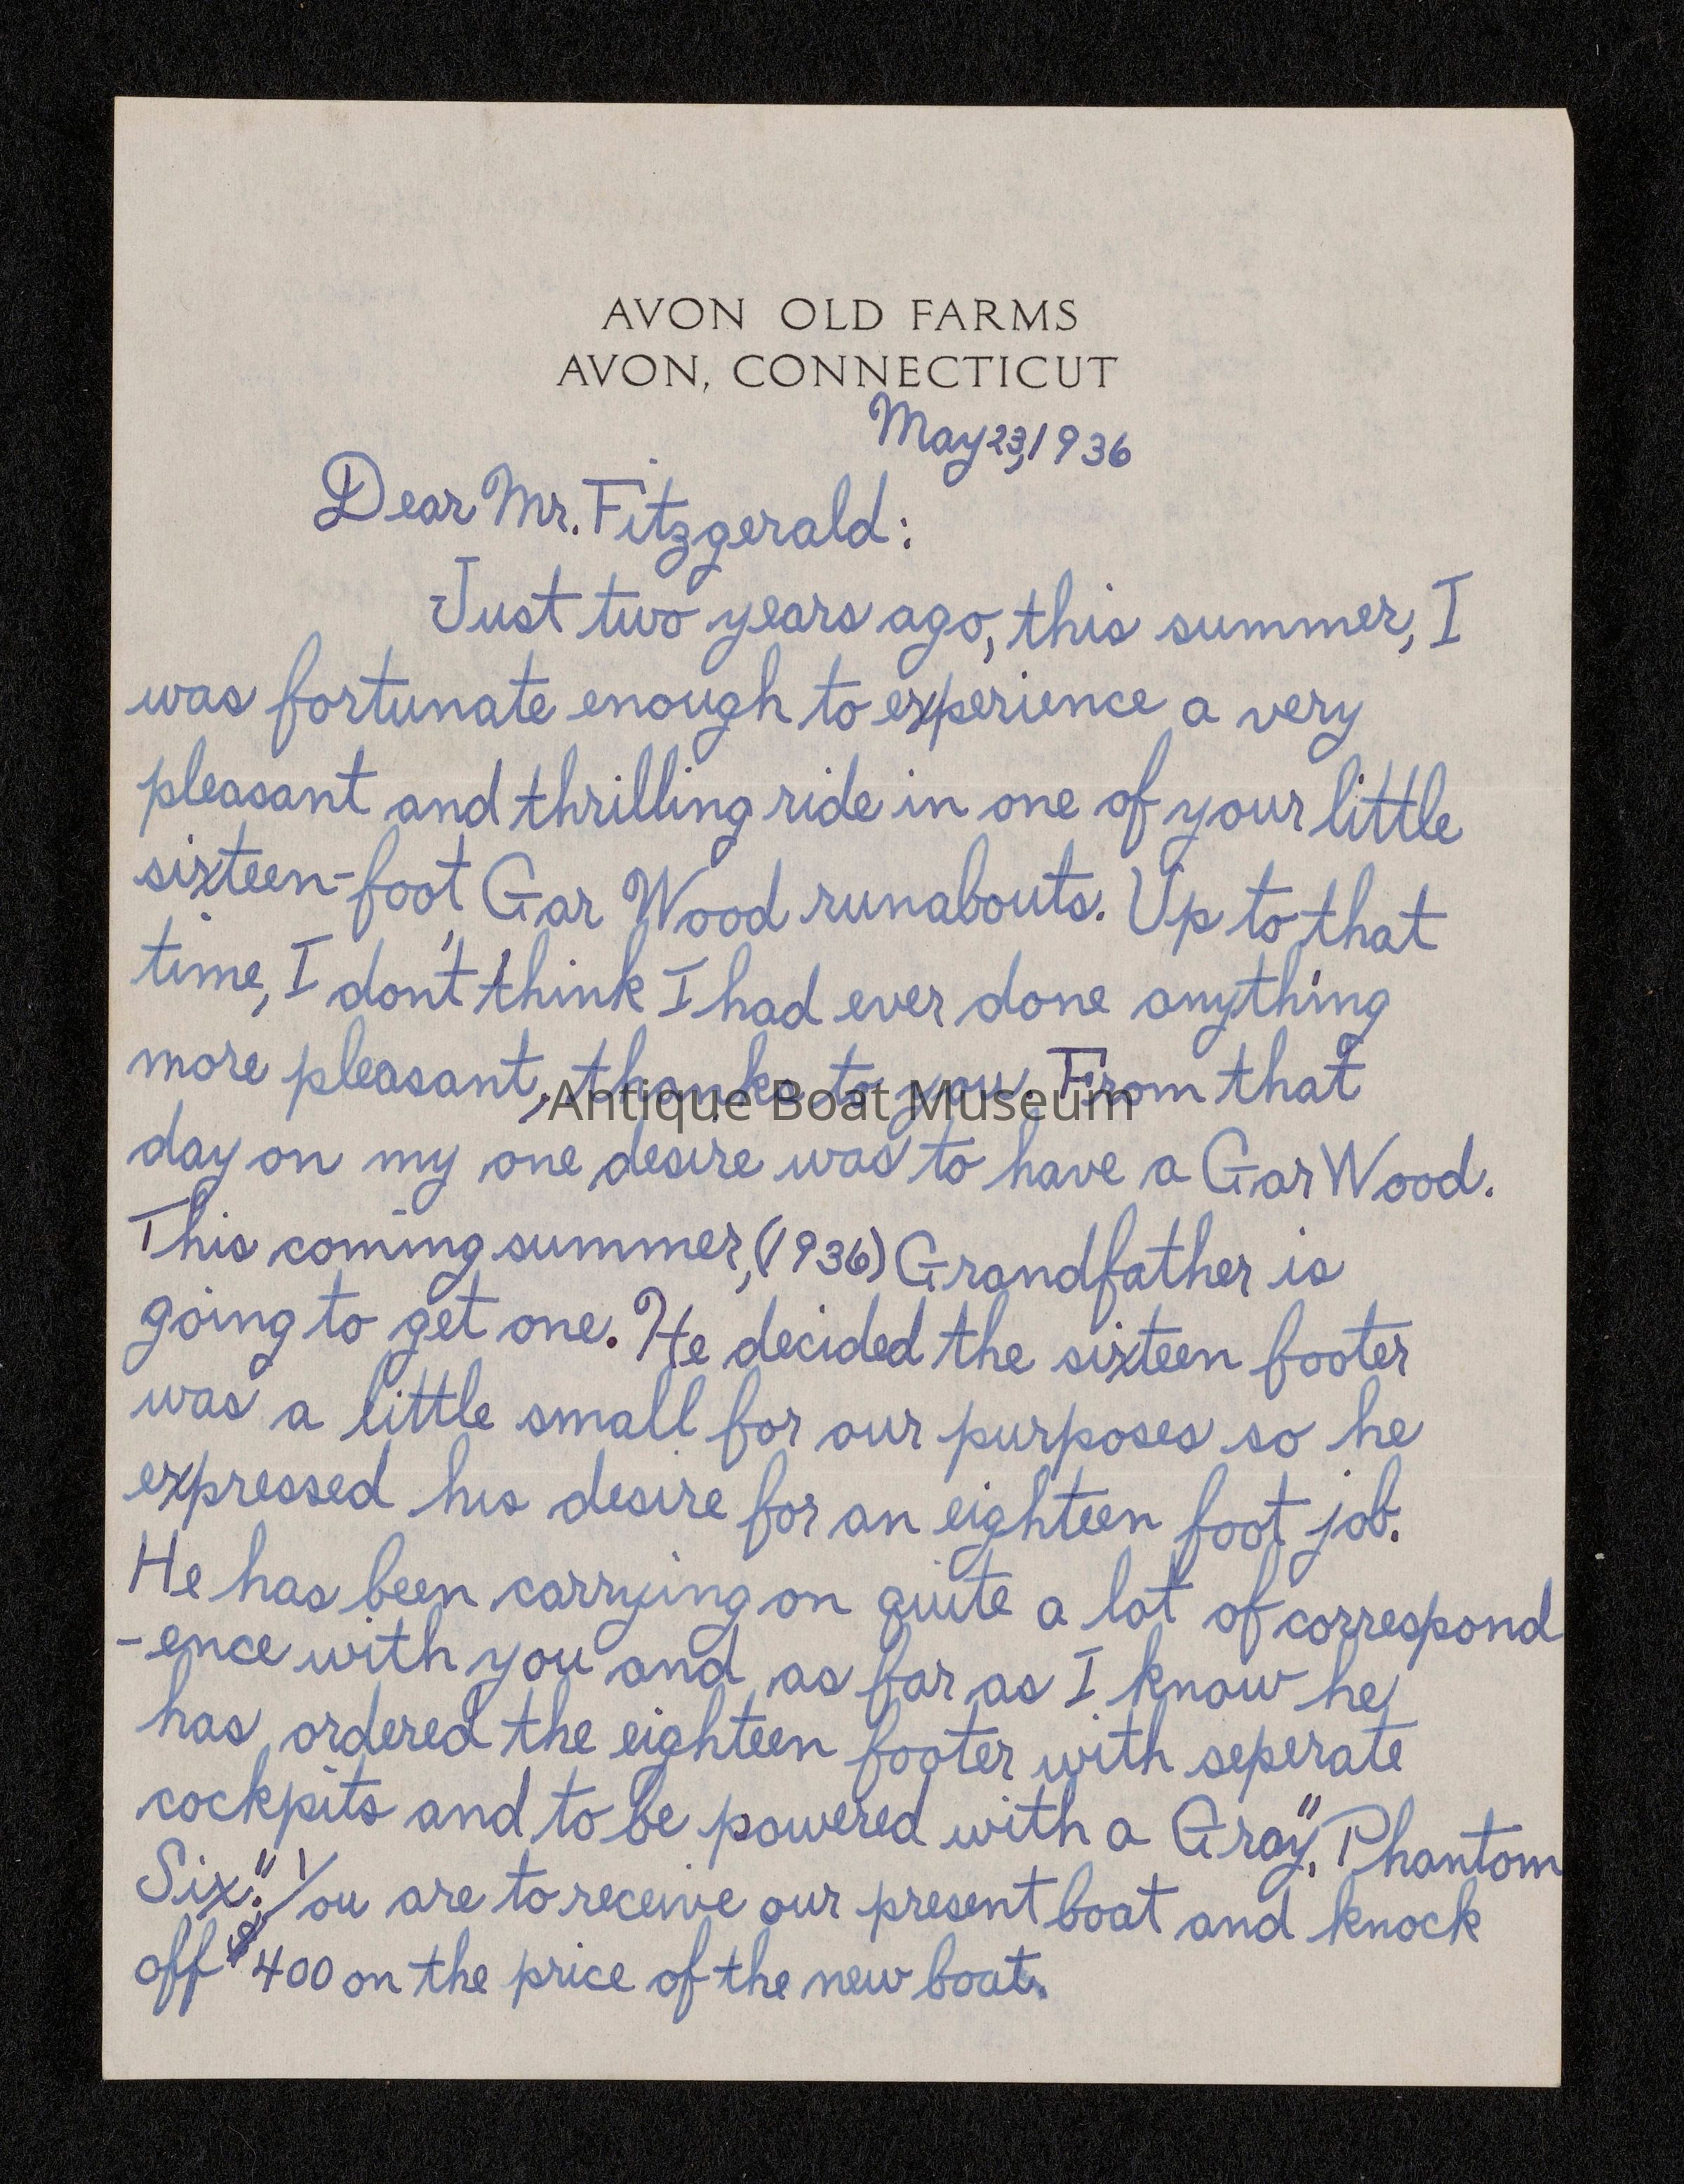 AVON OLD FARMS
AVON, CONNECTICUT
May 23, 1936
Dear Mr. Fitzgerald:
Just two years ago, this summer, I
was fortunate enough to experience a very
pleasant and thrilling ride in one of your little
sixteen-foot Gar Wood runabouts. Up to that
time, I don't think I had ever done anything
more pleasant, thanks to you. From that
Antique Boat Museum
day on my one desire was to have a Gar Wood.
This coming summer, (1936) Grandfather is
going to get one. He decided the sixteen footer
was a little small for our purposes so he
expressed his desire for an eighteen foot job.
He has been carrying on quite a lot of correspond
-ence with you and as far as I know he
has ordered the eighteen footer with seperate
cockpits and to be powered with a Gray, "Phantom
Six." You are to receive our present boat and knock
off $400 on the price of the new boat.